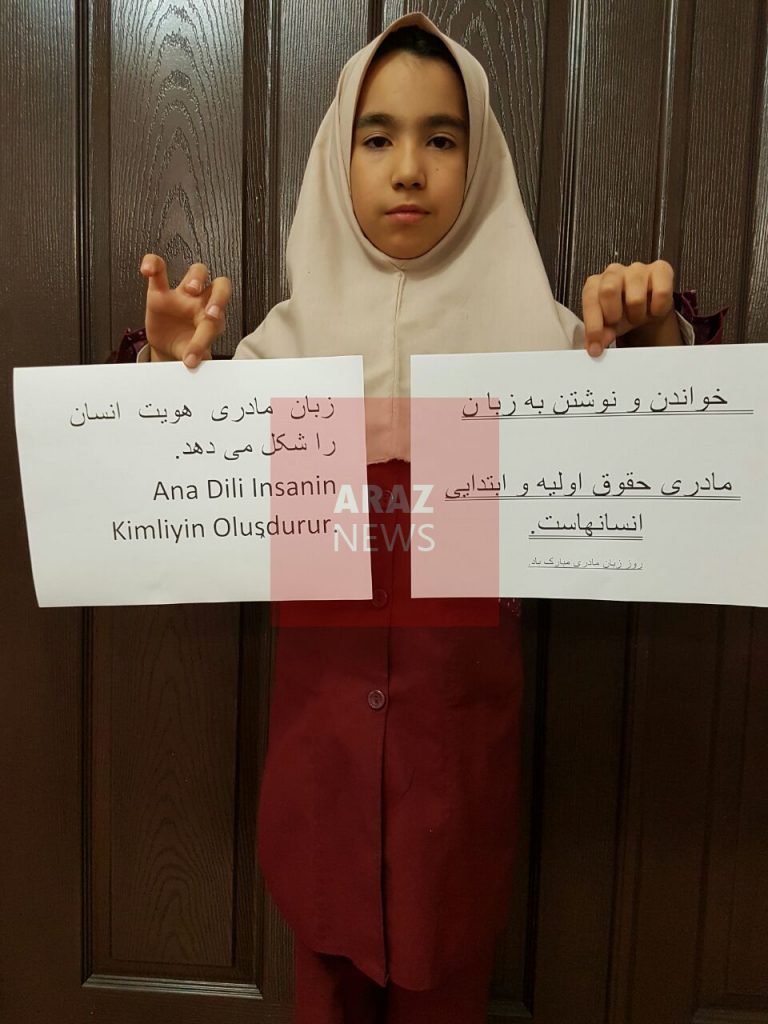 زبان مادری هویت انسان
را شکل می دهد.
Ana Dili Insanin
Kimliyin Oluşdurur.
خواندن و نوشتن به زبان
مادری حقوق اولیه و ابتدایی
انسانهاست.
روز زبان مادری مبارک باد
ARAZ
NEWS